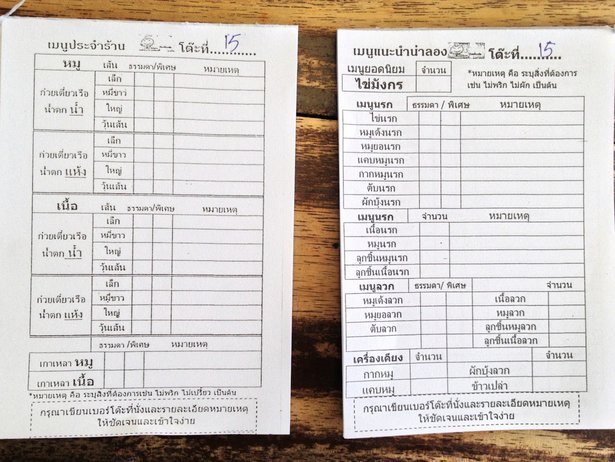 เมนูประจำร้าน โต๊ะที่ 15
หมู เส้น ธรรมดา/พิเศษ หมายเหตุ
ก๋วยเตี๋ยวเรือ
น้ำตก น้ำ
เล็ก
หมี่ขาว
ใหญ่
วุ้นเส้น
ก๋วยเตี๋ยวเรือ
น้ำตก แห้ง
เล็ก
หมี่ขาว
ใหญ่
วุ้นเส้น
เนื้อ เส้น ธรรมดา/พิเศษ หมายเหตุ
ก๋วยเตี๋ยวเรือ
น้ำตก น้ำ
เล็ก
หมี่ขาว
ใหญ่
วุ้นเส้น
ก๋วยเตี๋ยวเรือ
น้ำตก แห้ง
เล็ก
หมี่ขาว
ใหญ่
วุ้นเส้น
ธรรมดา/พิเศษ หมายเหตุ
เกาเหลา หมู
เกาเหลา เนื้อ
*หมายเหตุ คือ ระบุสิ่งที่ต้องการเช่น ไม่พริก ไม่เปรี้ยว เป็นต้น
กรุณาเขียนเบอร์โต๊ะที่นั่งและรายละเอียดหมายเหตุ
ให้ชัดเจนและเข้าใจง่าย
เมนูแนะนำน่าลอง โต๊ะที่ 15
เมนูยอดนิยม จำนวน
ไข่มังกร
*หมายเหตุ คือ ระบุสิ่งที่ต้องการ
เช่น ไม่พริก ไม่ผัก เป็นต้น
เมนูนรก ธรรมดา / พิเศษ หมายเหตุ
ไข่นรก
หมูเด้งนรก
หมูยอนรก
แคบหมูนรก
กากหมูนรก
ตับนรก
ผักบุ้งนรก
เมนูนรก จำนวน หมายเหตุ
เนื้อนรก
หมูนรก
ลูกชิ้นหมูนรก
ลูกชิ้นเนื้อนรก
เมนูลวก ธรรมดา/ พิเศษ จำนวน
หมูเด้งลวก เนื้อลวก
หมูยอลวก หมูลวก
ตับลวก ลูกชิ้นหมูลวก
ลูกชิ้นเนื้อลวก
เครื่องเคียง จำนวน จำนวน
กากหมู ผักบุ้งลวก
แคบหมู ข้าวเปล่า
กรุณาเขียนเบอร์โต๊ะที่นั่งและรายละเอียดหมายเหตุ
ให้ชัดเจนและเข้าใจง่าย